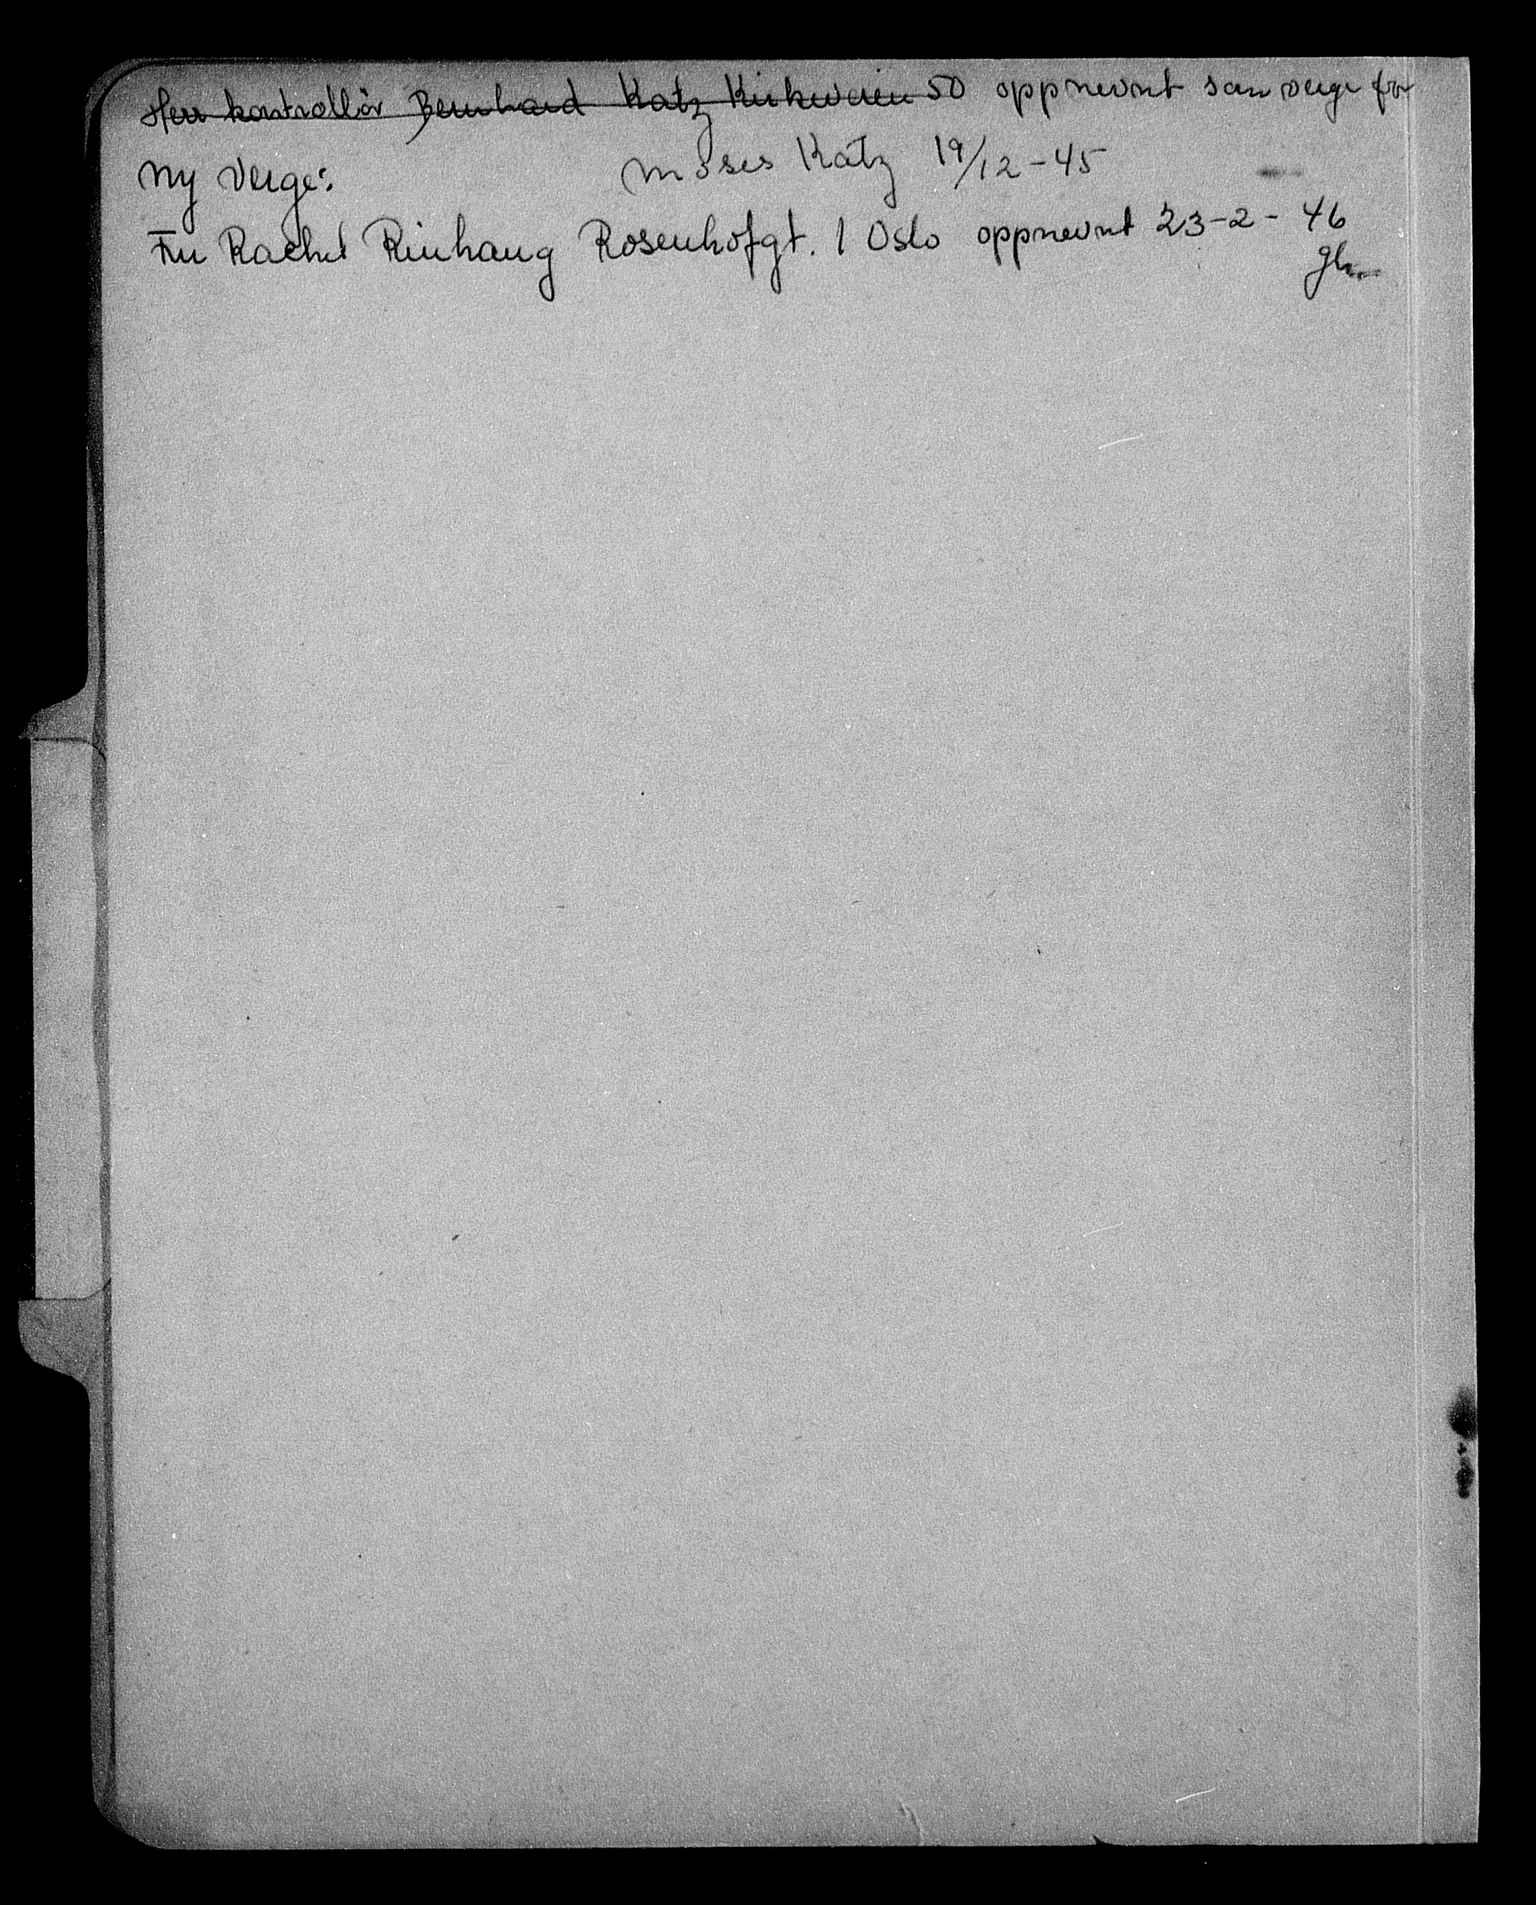 Herr kontrollör Bernhard Katz Kirkeveien 50 oppnevnt som verge for
Moses Katz 19/12-45
Ny verge:
Fru Rachel Rinhaug Rosenhofgt. 1 Oslo oppnevnt 23-2-46